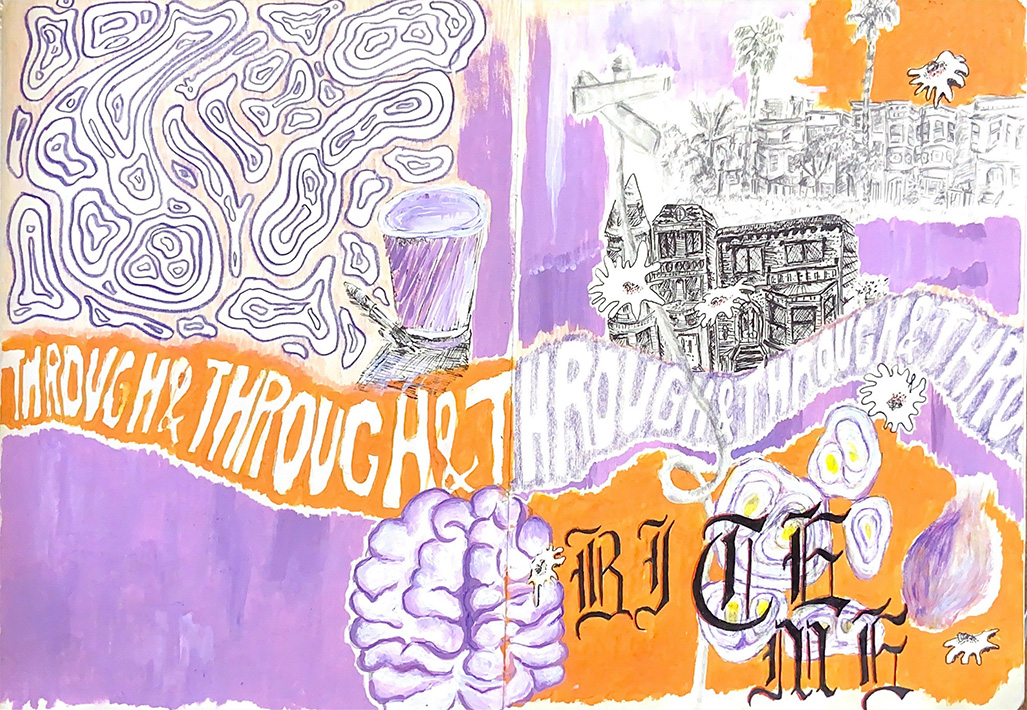 THROUGH & THROUGH & T
HROUGH & THROUGH & THRO
BITE
ME